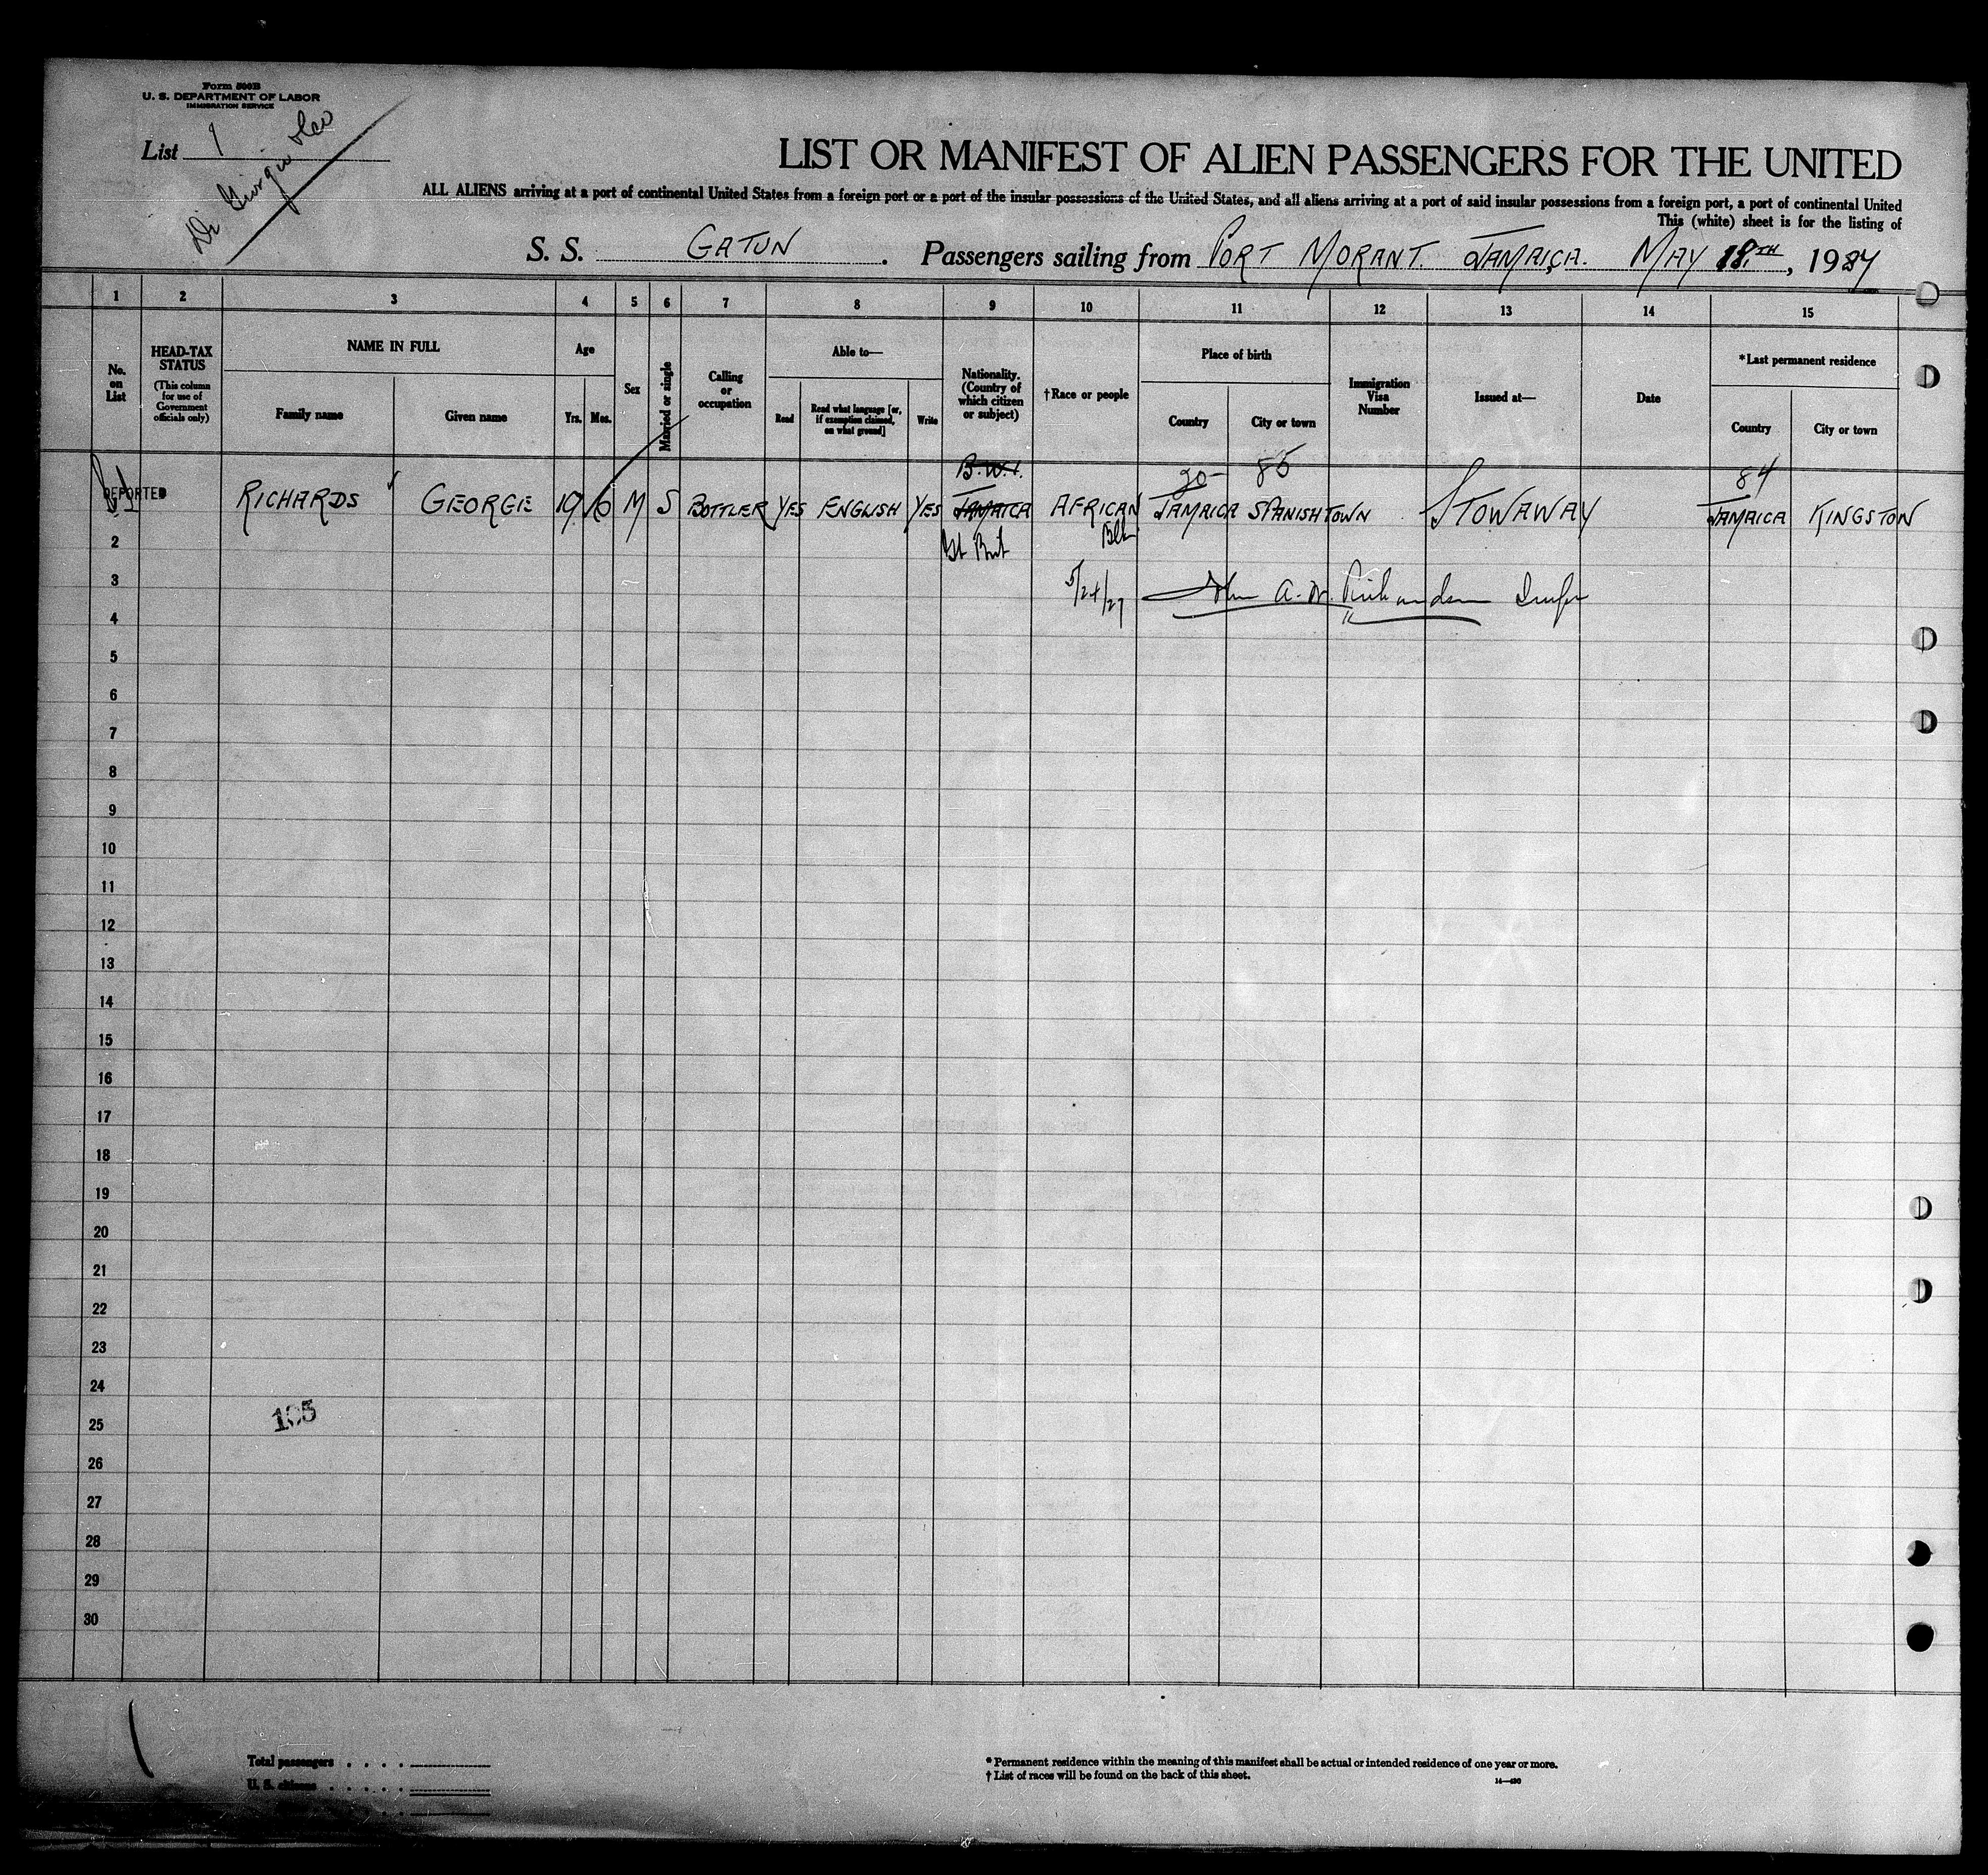 Form 500B
U. S. DEPARTMENT OF LABOR
IMMIGRATION SERVICE
List 1
Di Giorgio
LIST OR MANIFEST OF ALIEN PASSENGERS FOR THE UNITED
ALL ALIENS arriving at a port of continental United States from a foreign port or a port of the insular possessions of the United States, and all aliens arriving at a port of said insular possessions from a foreign port, a port of continental United
This (white) sheet is for the listing of
S. S. GATUN . Passengers sailing from PORT MORANT. JAMAICA. MAY 18.TH, 1927
1 2 3 4 5 6 7 8 9 10 11 12 13 14 15
No. on List
HEAD-TAX STATUS
(This column for use of Government officials only)
NAME IN FULL
Family name
Given name
Age
Yrs. Mos.
Sex
Married or single
Calling or occupation
Able to—
Read
Read what language [or, if exemption claimed, on what ground]
Write
Nationality. (Country of which citizen or subject)
†Race or people
Place of birth
Country
City or town
Immigration Visa Number
Issued at—
Date
*Last permanent residence
Country
City or town
B.W.I. 85 84
DEPORTED RICHARDS GEORGE 19 6 M S BOTTLER YES ENGLISH YES JAMAICA AFRICAN JAMAICA SPANISHTOWN STOWAWAY JAMAICA KINGSTON
Brit Blk
2
3
5/24/27 John A. Richardson
4
5
6
7
8
9
10
11
12
13
14
15
16
17
18
19
20
21
22
23
24
25
105
26
27
28
29
30
Total passengers . . . .
U. S. citizens . . . . .
* Permanent residence within the meaning of this manifest shall be actual or intended residence of one year or more.
† List of races will be found on the back of this sheet.
14—430